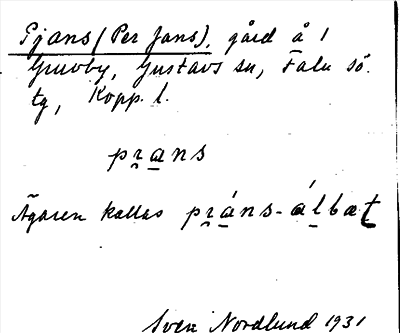 Pjans (Per Jans), gård å 1
Gruvby, Gustavs sn, Falu sö.
tg, Kopp. l.
pr̯a̲ns
Ägaren kallas pr̯á̲ns-á̲lbæt
Sven Nordlund 1931